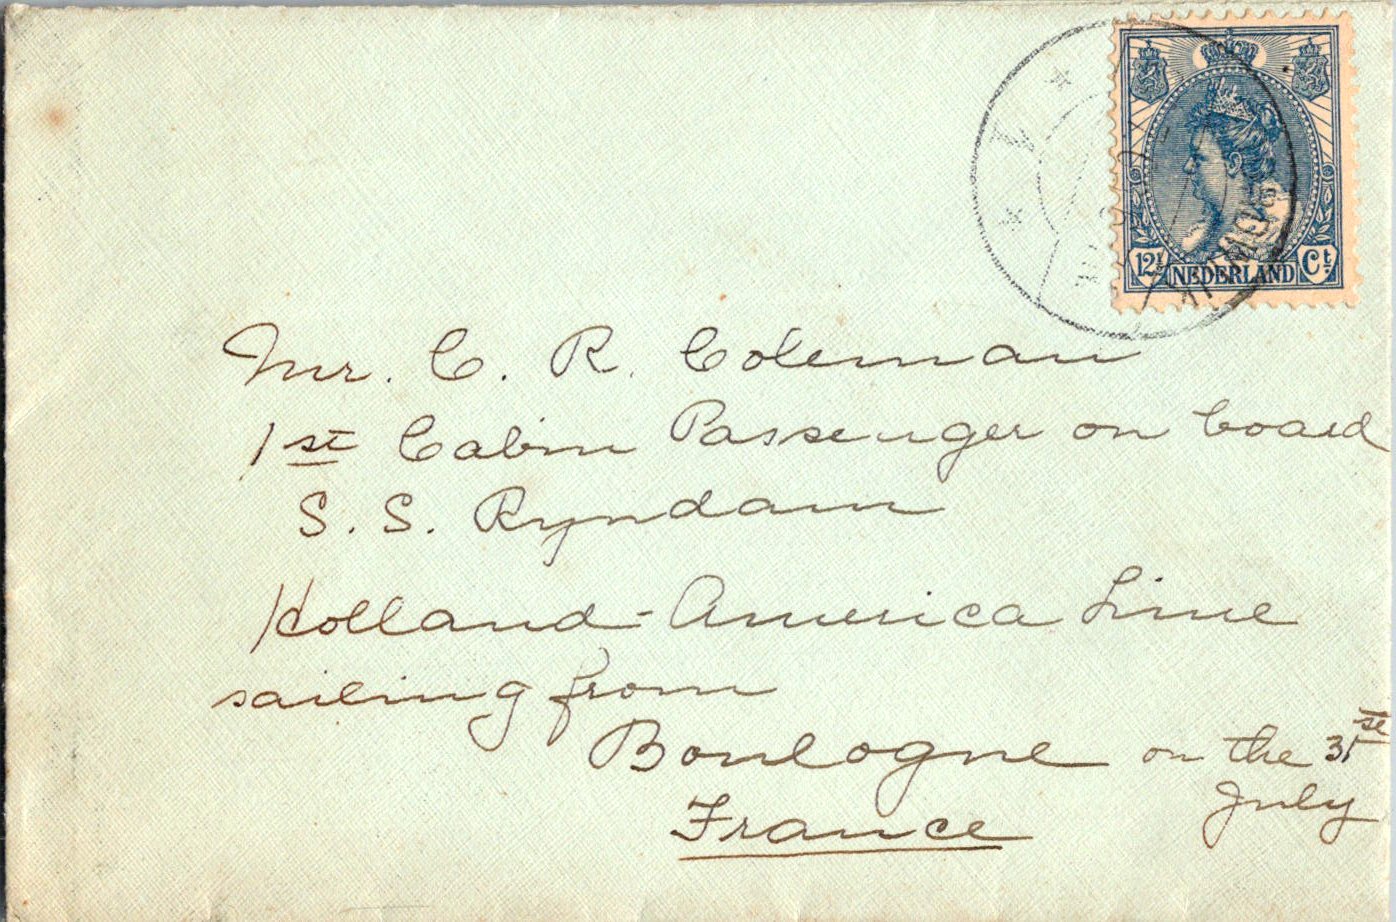 12½ Ct
NEDERLAND
Mr. C. R. Coleman
1st Cabin Passenger on board
S. S. Ryndam
Holland-America Line
sailing from
Boulogne on the 31st
July
France